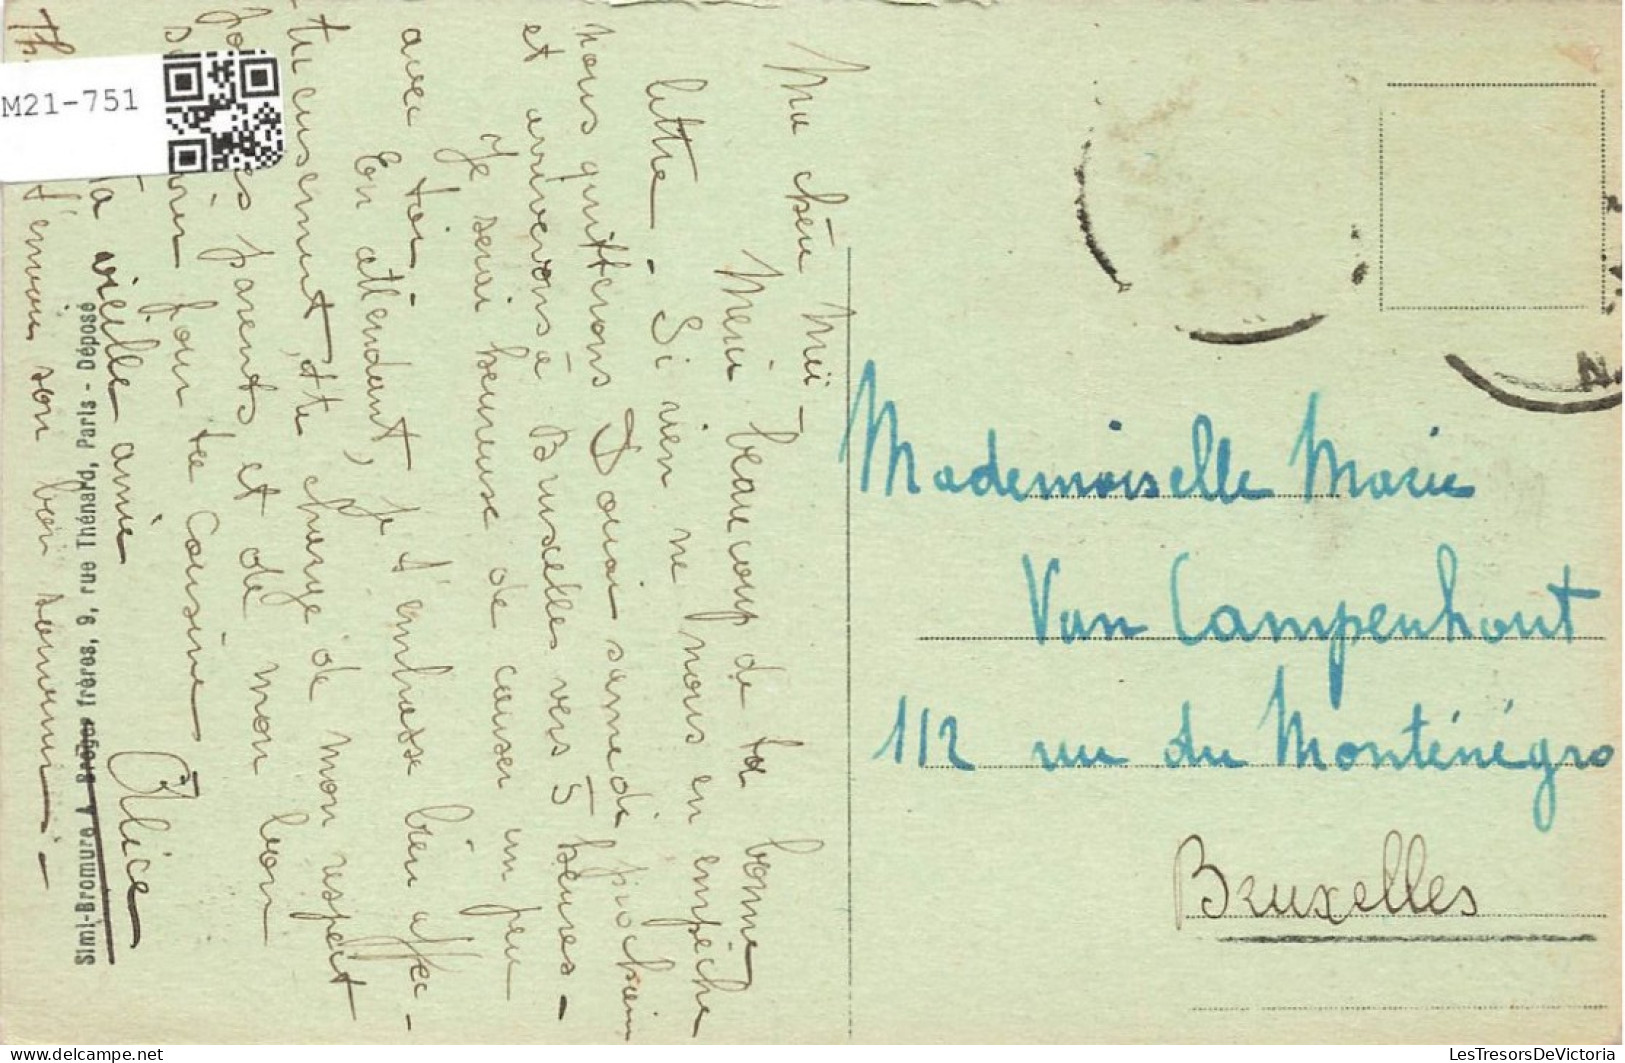 Ma chère Mii -
Merci beaucoup de ta bonne
lettre. Si rien ne nous en empêche
nous quitterons Douai samedi prochain
et arriverons à Bruxelles vers 5 heures -
Je serai heureuse de causer un peu
avec toi -
En attendant, je t'embrasse bien affec-
tueusement, te charge de mon respect
pour tes parents, et de mon bon
souvenir pour ta cousine
ta vieille amie
Alice
t'envoie son bon souvenir -
Simi-Bromure A Breger frères, 9, rue Thénard, Paris - Déposé
M21-751
Mademoiselle Marie
Van Campenhout
112 rue du Monténégro
Bruxelles
LesTresorsDeVictoria
www.delcampe.net